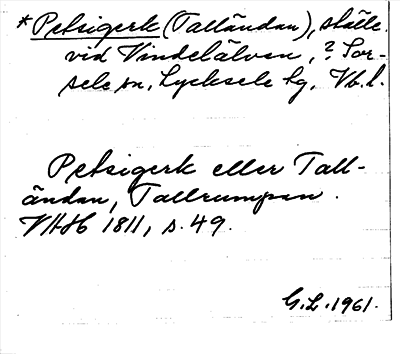 *Petsigerk (Talländan), ställe
vid Vindelälven, ? Sor-
sele sn, Lycksele tg, Vb. l.
Petsigerk eller Tall-
ändan, Tallrumpan.
VHAH 1811, s. 49.
G.L. 1961.